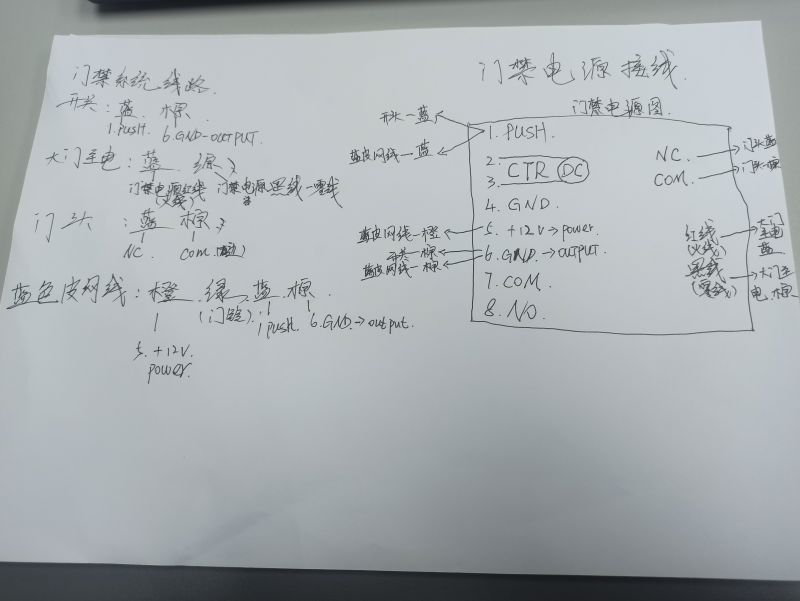 门禁系统线路.
开关: 蓝. 棕.
1.PUSH. 6.GND-OUTPUT.
大门主电: 蓝 综
门禁电源红线 门禁电源黑线-零线
(火线)
门头: 蓝 棕
NC. COM.
蓝色皮网线: 橙 绿 蓝 棕.
(门铃)
1push. 6.GND.→output.
5. +12V.
power.
门禁电源接线.
门禁电源图.
开关-蓝
蓝皮网线-蓝
1. PUSH.
2.
3.
CTR DC
4. GND.
蓝皮网线-橙
5. +12V→power.
开关-棕
蓝皮网线-棕
6. GND.→OUTPUT.
7. COM.
8. NO.
NC. 门头蓝
COM. 门头棕
红线
(火线)
大门主电蓝
黑线
(零线)
大门主电.棕